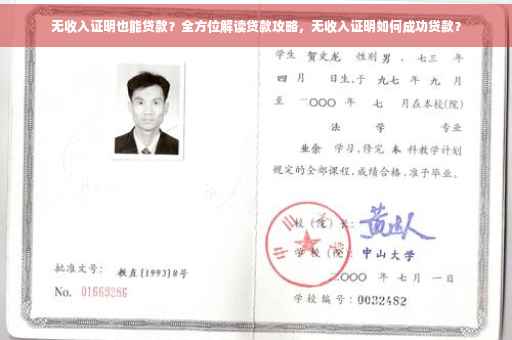 无收入证明也能贷款？全方位解读贷款攻略，无收入证明如何成功贷款？
学生 贺文龙 性别 男 、七三 年
四 月 日生,于 九七 年 九 月
至 二〇〇〇 年 七 月在本校(院)
法 学 专业
业余 学习,修完 本 科教学计划
规定的全部课程,成绩合格,准予毕业。
校（院）长：
学校（院）：中山大学
批准文号： 教直[1993]8号
二〇〇〇 年 七 月 一 日
No. 01669286
学校编号：0032482